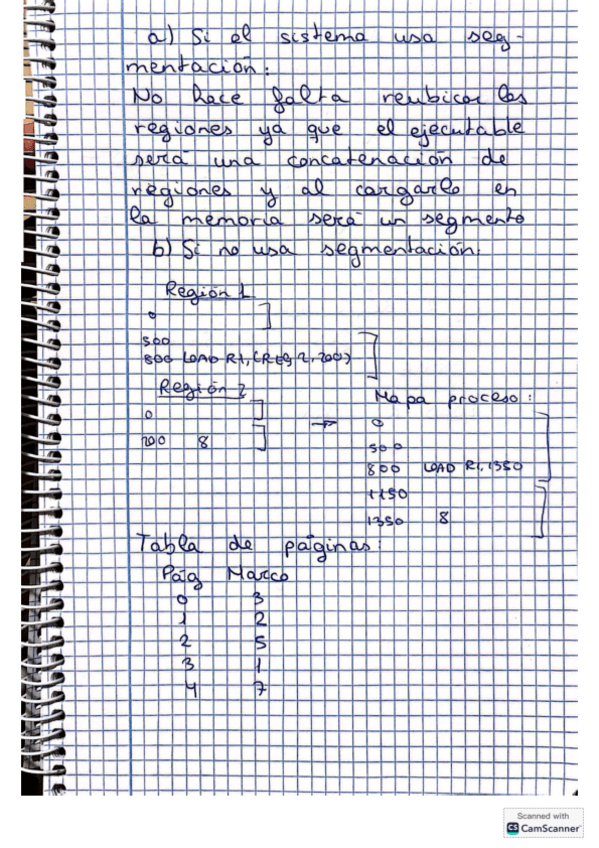 a) Si el sistema usa seg-
mentación:
No hace falta reubicar las
regiones ya que el ejecutable
será una concatenación de
regiones y al cargarlo en
la memoria será un segmento
b) Si no usa segmentación:
Región 1
0
500
800 LOAD R1, (REG 2, 200)
Región 2
0
200 8
→ Mapa proceso:
0
500
800 LOAD R1, 1350
1150
1350 8
Tabla de páginas:
Pág Marco
0 3
1 2
2 5
3 1
4 7
Scanned with
CS CamScanner